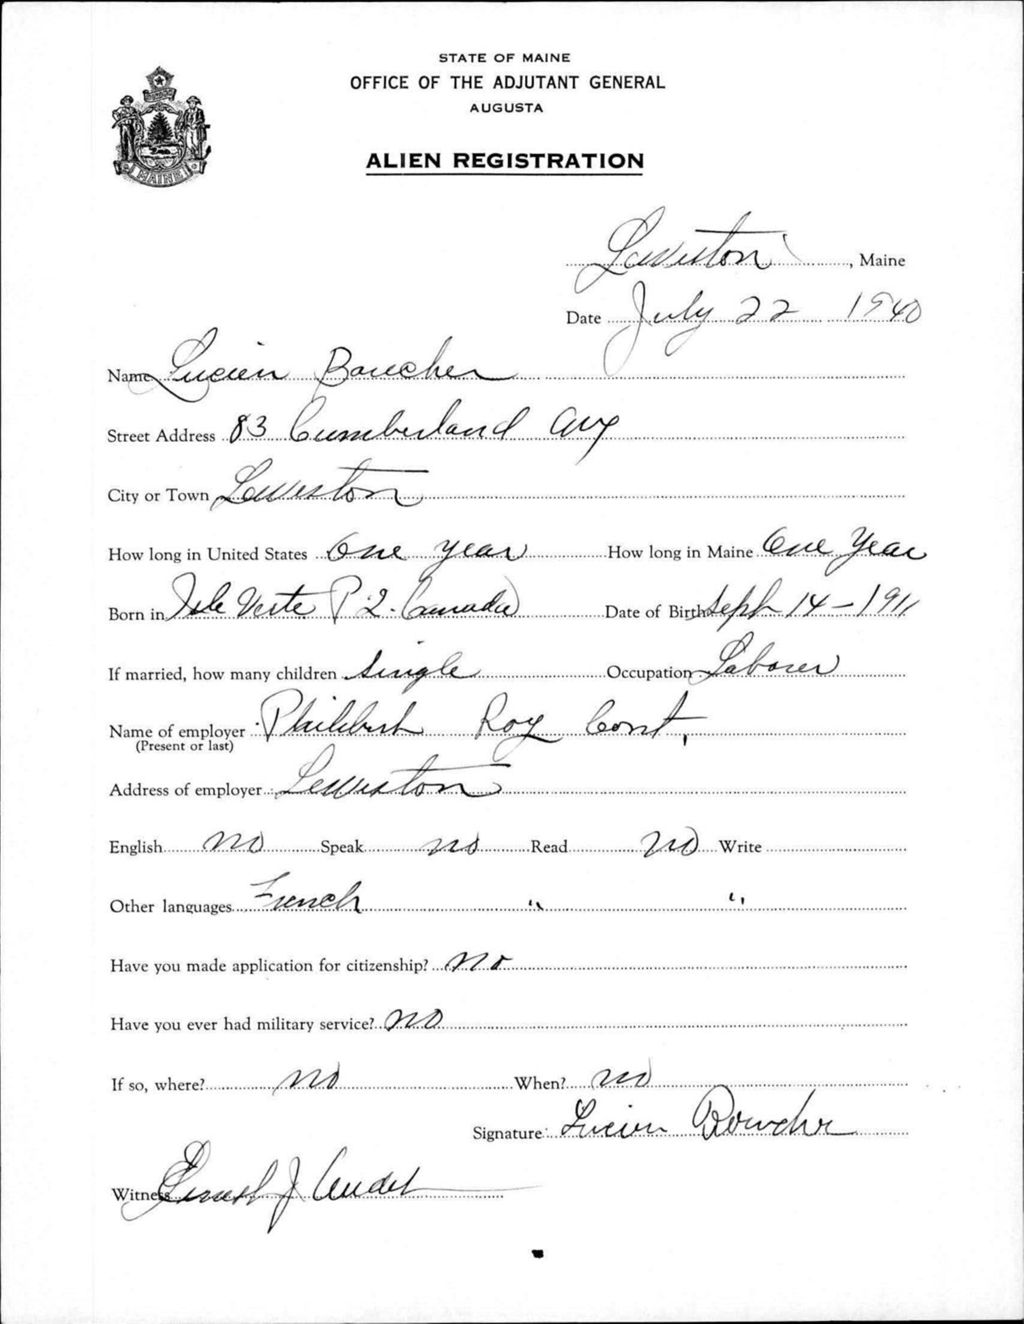 STATE OF MAINE
OFFICE OF THE ADJUTANT GENERAL
AUGUSTA
MAINE
ALIEN REGISTRATION
Lewiston, Maine
Date July 22 1940
Name Lucien Boucher
Street Address 83 Cumberland Ave
City or Town Lewiston
How long in United States One year How long in Maine One Year
Born in Isle Verte P.Q. Canada Date of Birth Sept 14 - 1911
If married, how many children Single Occupation Laborer
Name of employer Philibert Roy Cont,
(Present or last)
Address of employer Lewiston
English no Speak no Read no Write
Other languages French " "
Have you made application for citizenship? no
Have you ever had military service? no
If so, where? no When? no
Signature Lucien Boucher
Witness Ernest J Audet